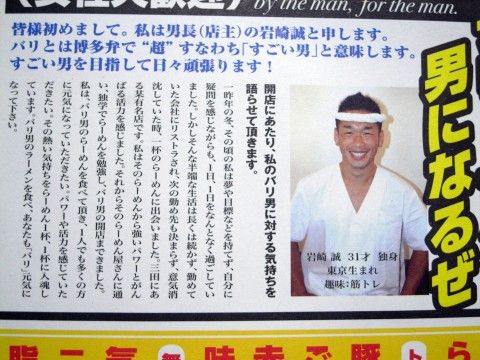 (女性大歓迎)
by the man, for the man.
皆様初めまして。私は男長(店主)の岩崎誠と申します。
バリとは博多弁で“超”すなわち「すごい男」と意味します。
すごい男を目指して日々頑張ります!
男になるぜ
開店にあたり、私のバリ男に対する気持ちを
語らせて頂きます。
一昨年の冬、その頃の私は夢や目標などを持てず、自分に
疑問を感じながらも、1日、1日をなんとなく過ごしてい
ました。しかしそんな半端な生活は長くは続かず、勤めて
いた会社にリストラされ、次の勤め先も決まらず、意気消
沈していた時、一杯のらーめんに出会いました。三田にあ
る某有名店です。私はそのらーめんから強いパワーとがん
ばる活力を感じました。それからそのらーめん屋さんに通
い、独学でらーめんを勉強し、バリ男の開店まできました。
私は、バリ男のらーめんを食べて頂き1人でも多くの方
に元気になっていただきたい。パワーや活力を感じていた
だきたい。その熱い気持ちをらーめん1杯、1杯に入魂し
ています。バリ男のラーメンを食べ、あなたも、「バリ」元気に
なって下さい。
岩崎 誠 31才 独身
東京生まれ
趣味:筋トレ